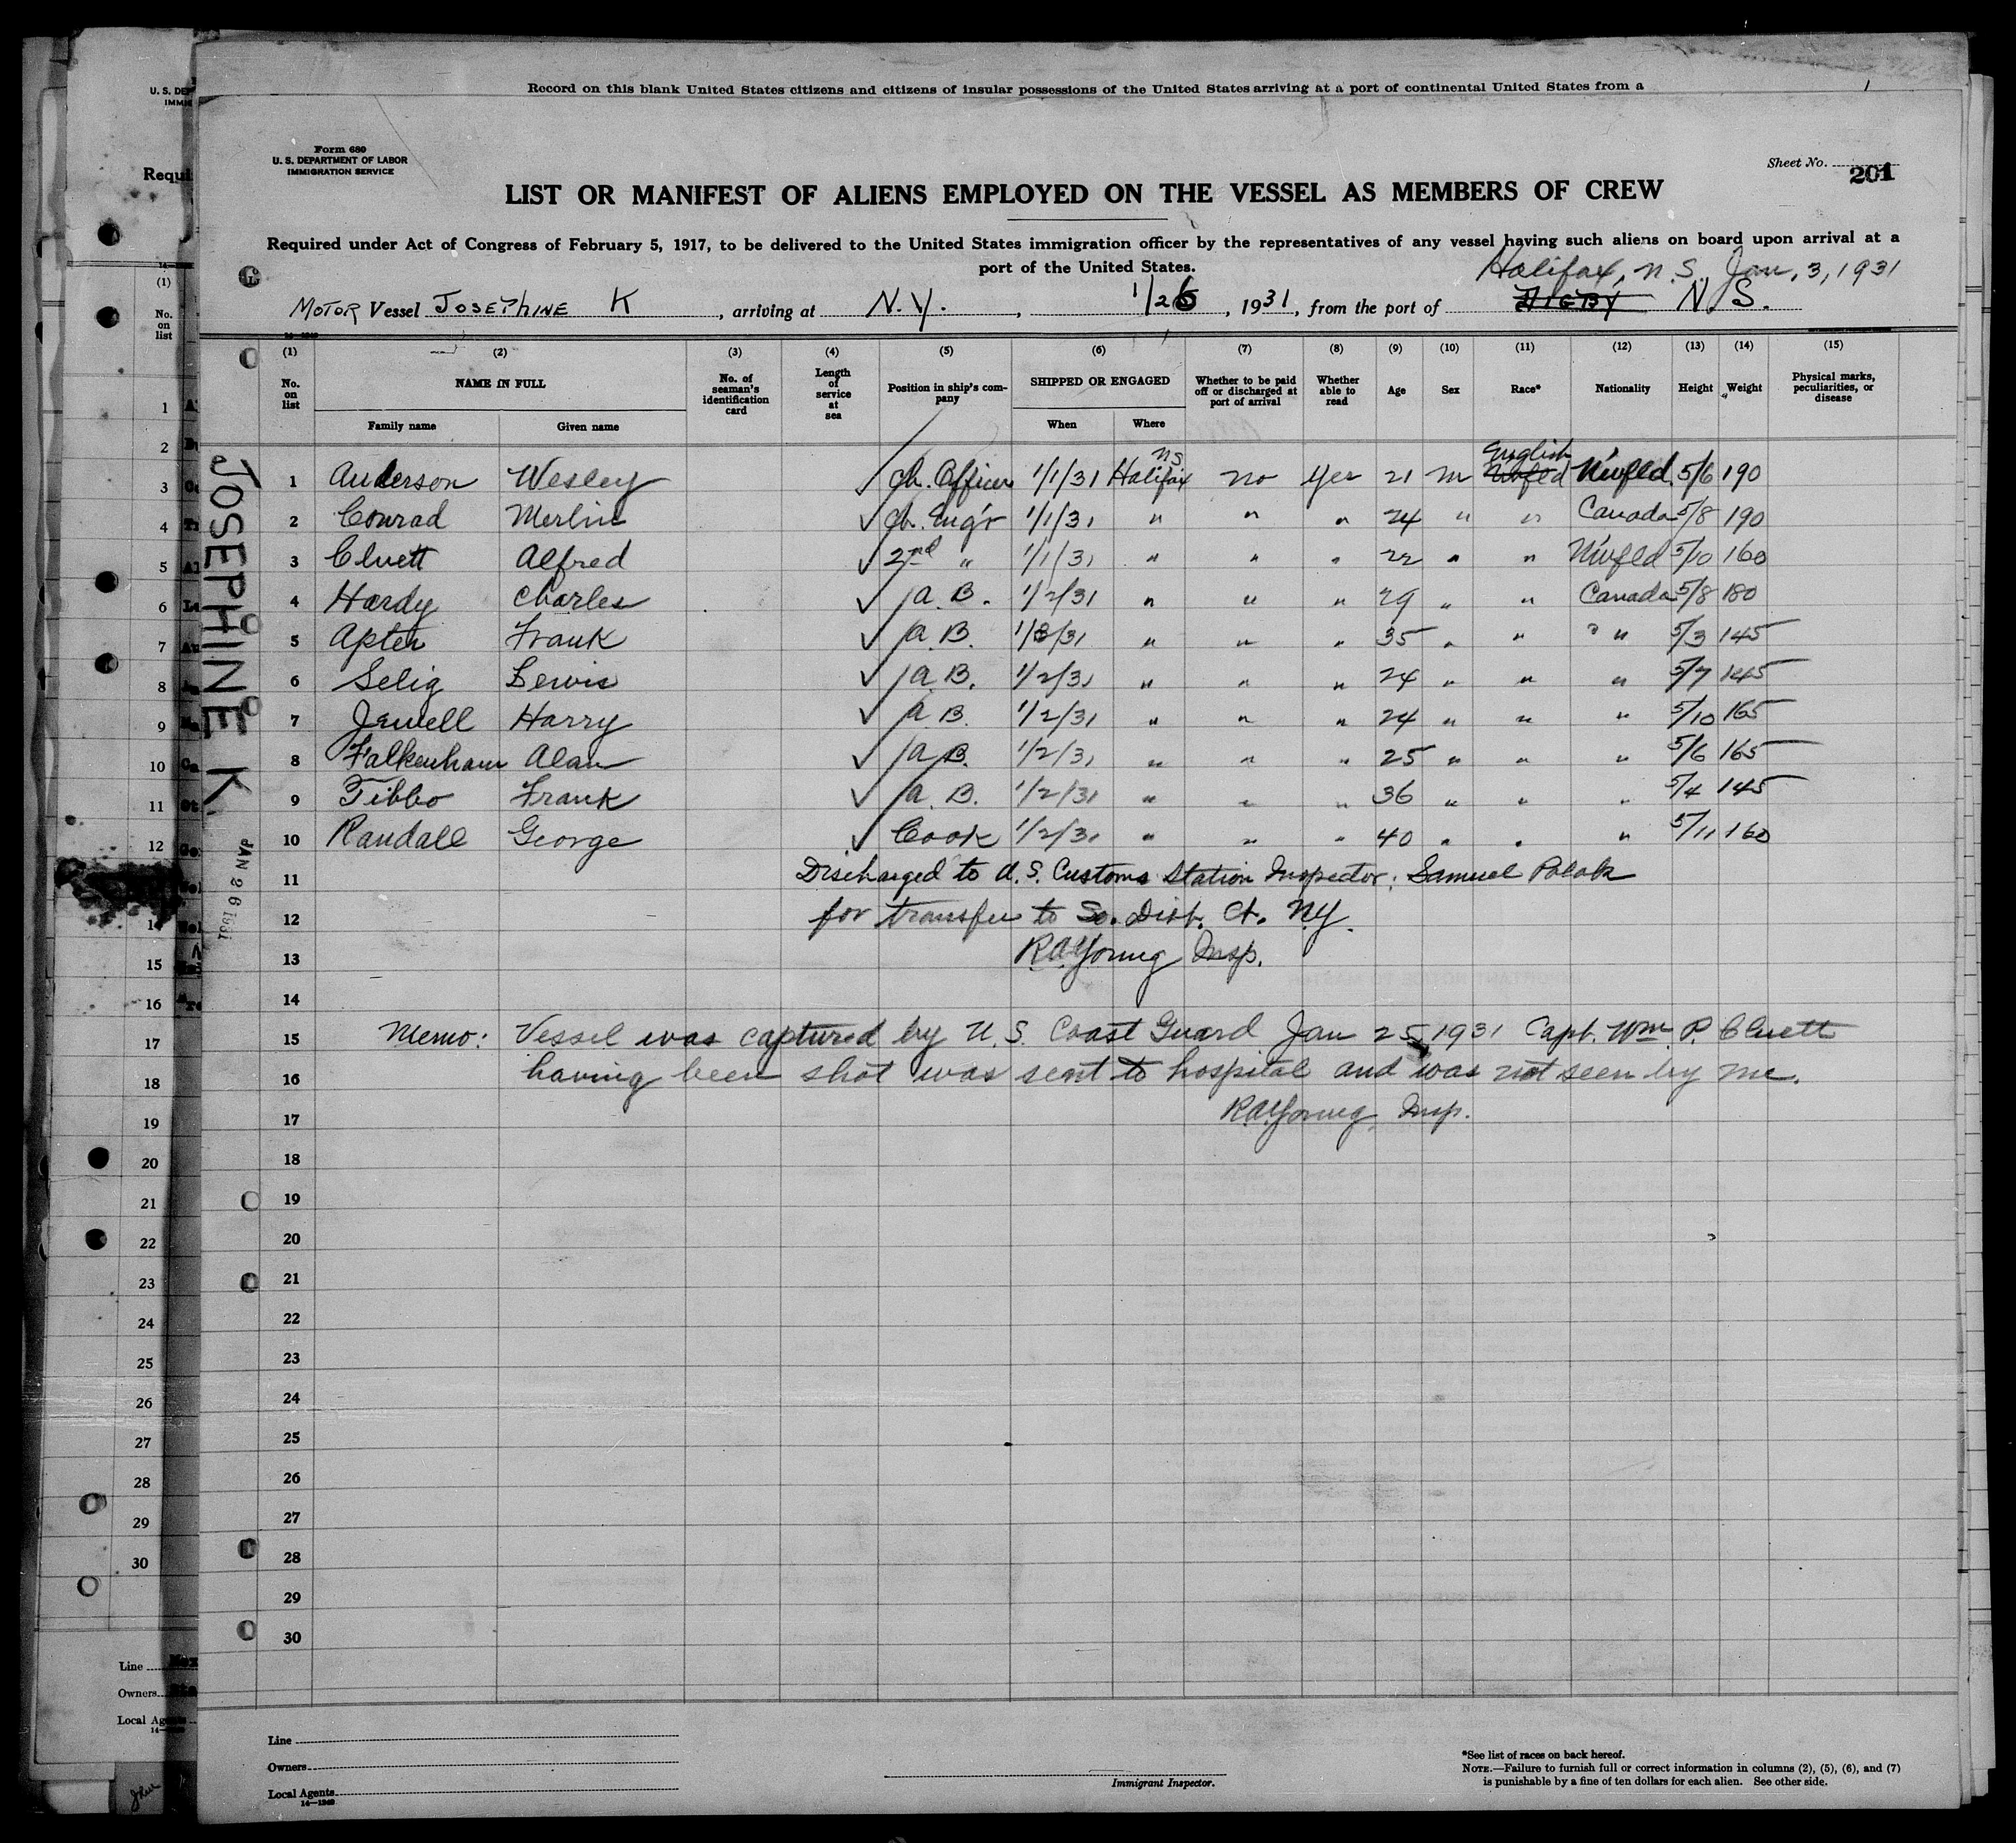 Record on this blank United States citizens and citizens of insular possessions of the United States arriving at a port of continental United States from a
Form 680
U. S. DEPARTMENT OF LABOR
IMMIGRATION SERVICE
Sheet No.
201
LIST OR MANIFEST OF ALIENS EMPLOYED ON THE VESSEL AS MEMBERS OF CREW
Required under Act of Congress of February 5, 1917, to be delivered to the United States immigration officer by the representatives of any vessel having such aliens on board upon arrival at a
port of the United States.
Halifax, N.S. Jan, 3, 1931
MOTOR Vessel JOSEPHINE K, arriving at N.Y., 1/26, 1931, from the port of DIGBY N.S.
(1) (2) (3) (4) (5) (6) (7) (8) (9) (10) (11) (12) (13) (14) (15)
No. on list NAME IN FULL No. of seaman's identification card Length of service at sea Position in ship's company SHIPPED OR ENGAGED Whether to be paid off or discharged at port of arrival Whether able to read Age Sex Race* Nationality Height Weight Physical marks, peculiarities, or disease
Family name Given name When Where
JOSEPHINE K.
JAN 26 1931
1 Anderson Wesley ✓ Ch. Officer 1/1/31 Halifax NS No Yes 21 M English Nwfld Nwfld. 5/6 190
2 Conrad Merlin ✓ Ch. Eng'r 1/1/31 " " " 24 " " Canada 5/8 190
3 Cluett Alfred ✓ 2nd " 1/1/31 " " " 22 " " Nwfld 5/10 160
4 Hardy Charles ✓ A. B. 1/2/31 " " " 29 " " Canada 5/8 180
5 Apter Frank ✓ A. B. 1/2/31 " " " 35 " " " 5/3 145
6 Selig Lewis ✓ A. B. 1/2/31 " " " 24 " " " 5/7 145
7 Jewell Harry ✓ A B. 1/2/31 " " " 24 " " " 5/10 165
8 Falkenham Alan ✓ A B. 1/2/31 " " " 25 " " " 5/6 165
9 Tibbo Frank ✓ A. B. 1/2/31 " " " 36 " " " 5/4 145
10 Randall George ✓ Cook 1/2/31 " " " 40 " " " 5/11 160
11 Discharged to U. S. Customs Station Inspector: Samuel Polak
12 for transfer to So. Dist. Ct. NY.
13 RAYoung Insp.
14
15 Memo: Vessel was captured by U. S. Coast Guard Jan 25, 1931 Capt. Wm. P. Cluett
16 having been shot was sent to hospital and was not seen by me.
17 RAYoung Insp.
18
19
20
21
22
23
24
25
26
27
28
29
30
Line
Owners
Local Agents
14—1240
Immigrant Inspector.
*See list of races on back hereof.
NOTE.—Failure to furnish full or correct information in columns (2), (5), (6), and (7)
is punishable by a fine of ten dollars for each alien. See other side.